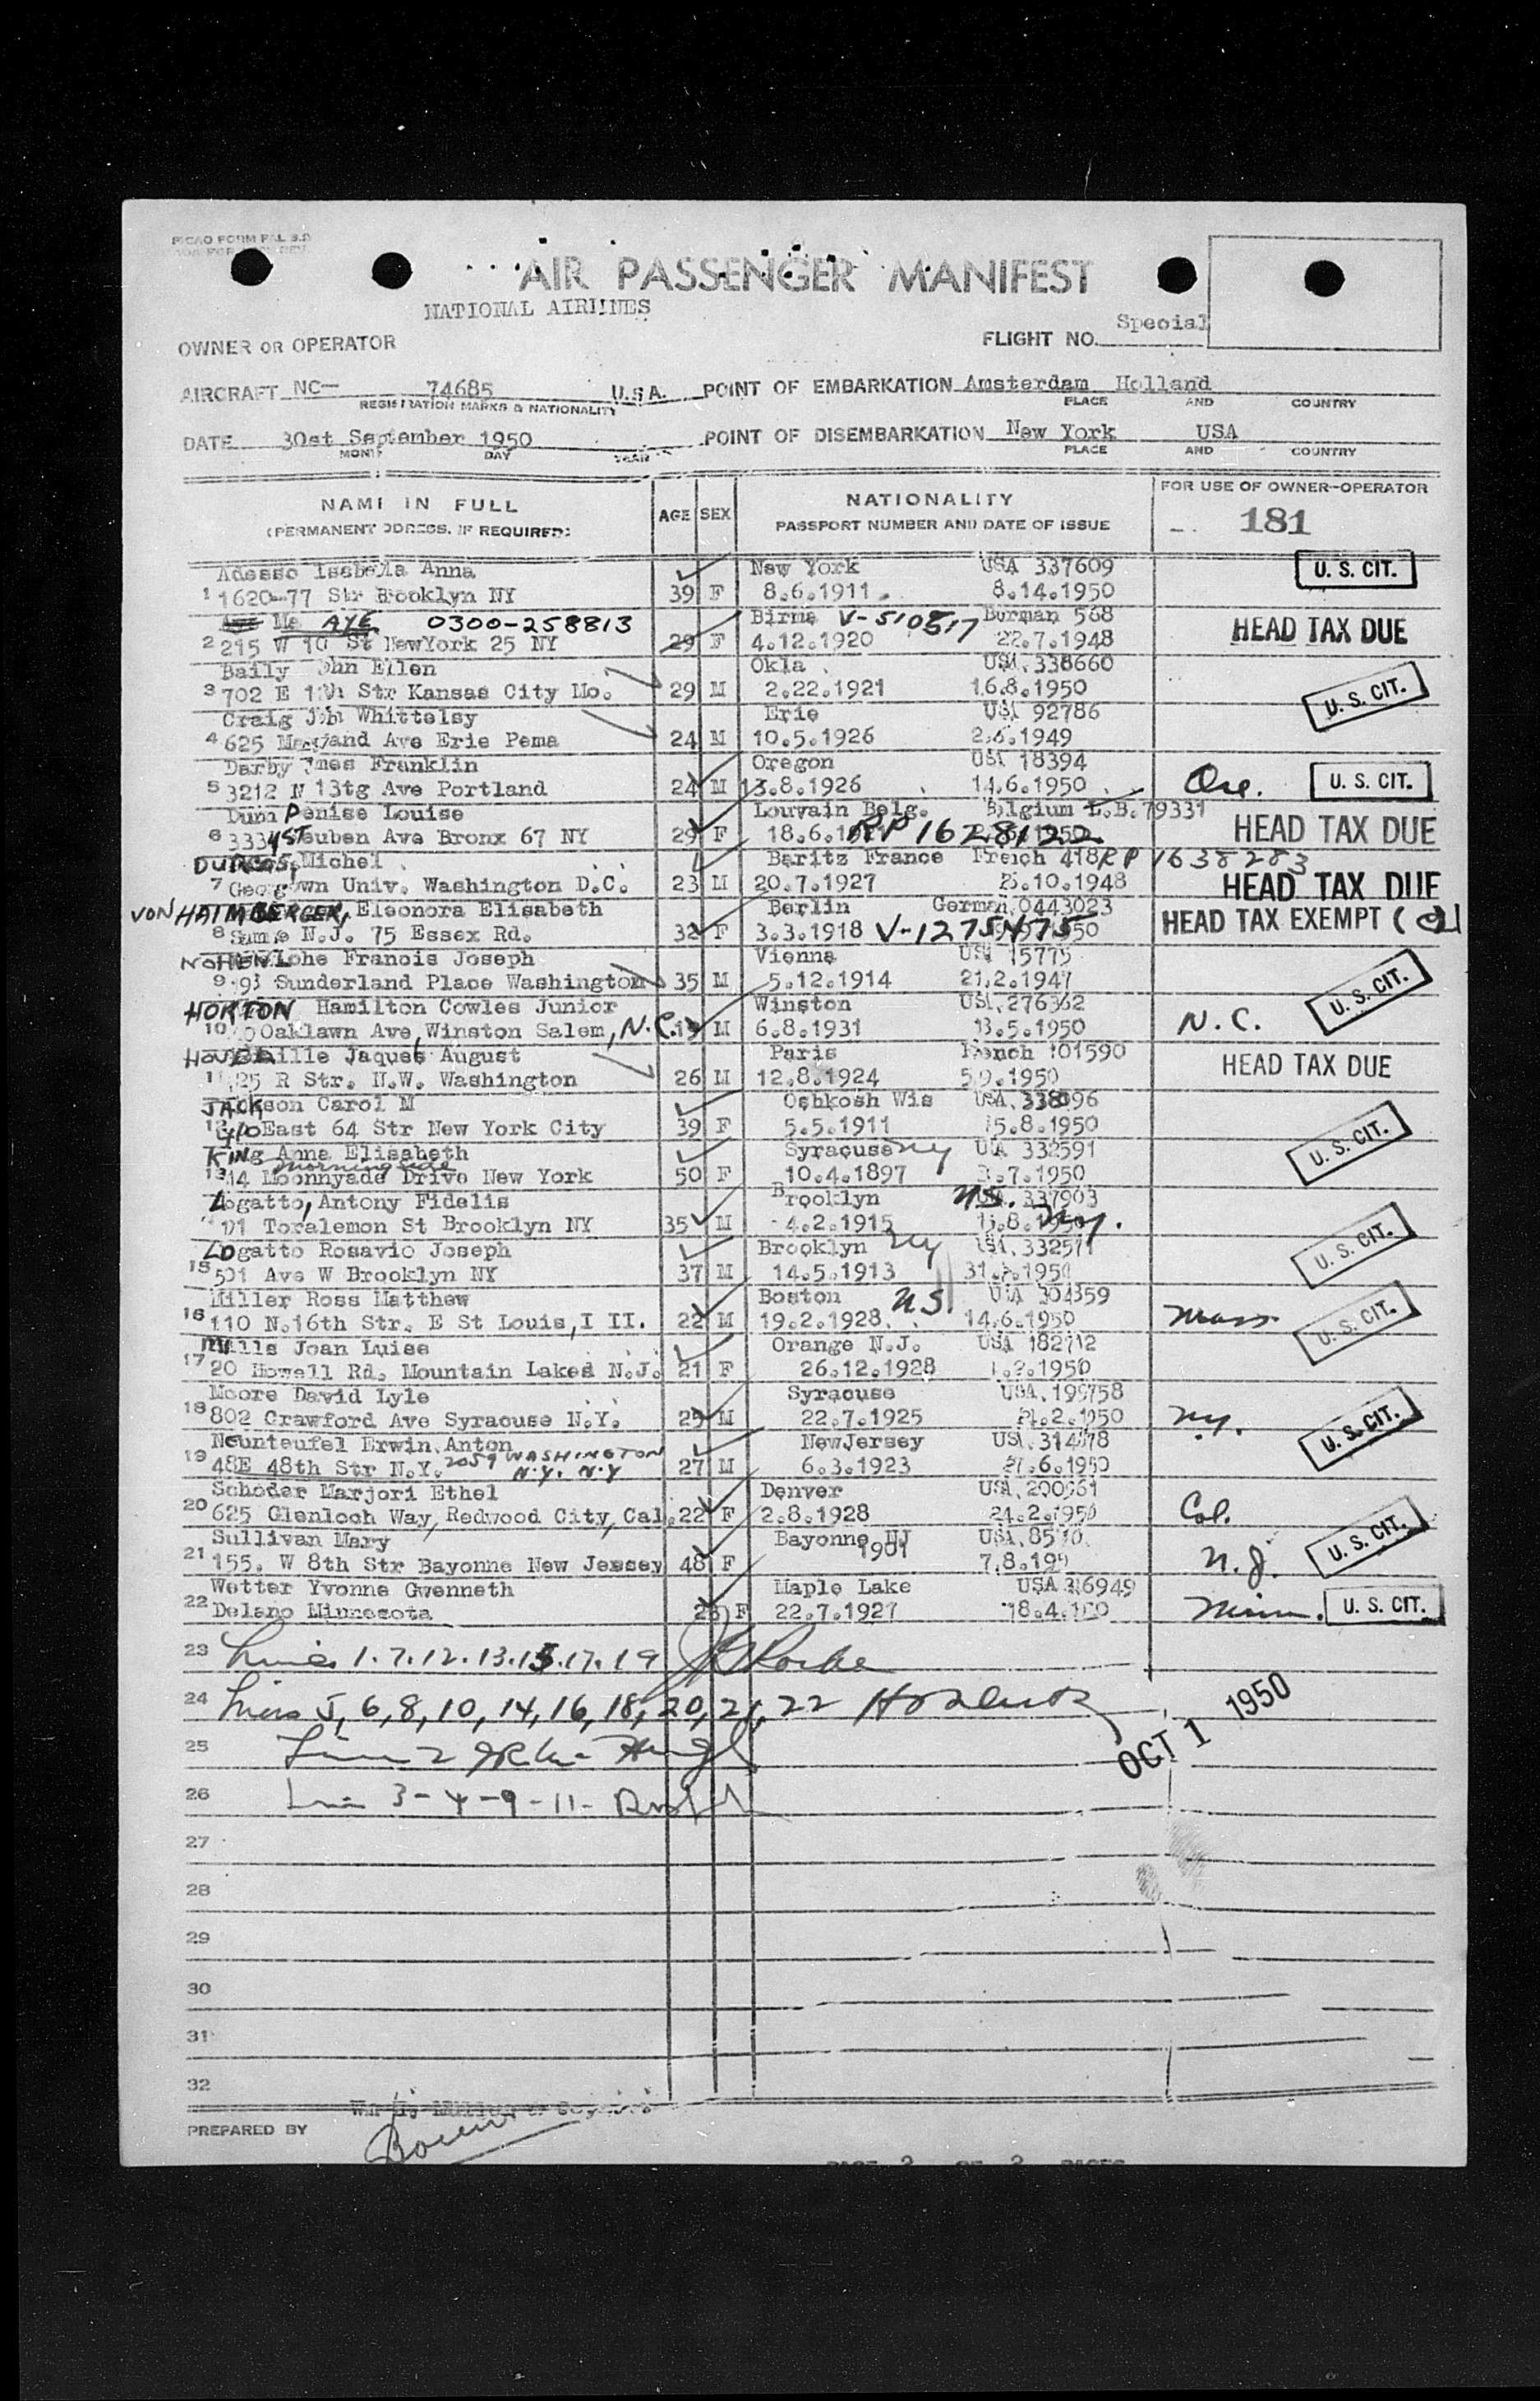 AIR PASSENGER MANIFEST
NATIONAL AIRLINES
OWNER OR OPERATOR
FLIGHT NO. Special
AIRCRAFT NC— 74685 U.S.A. POINT OF EMBARKATION Amsterdam Holland
REGISTRATION MARKS & NATIONALITY PLACE AND COUNTRY
DATE 30st September 1950 POINT OF DISEMBARKATION New York USA
MONTH DAY YEAR PLACE AND COUNTRY
NAME IN FULL AGE SEX NATIONALITY FOR USE OF OWNER-OPERATOR
(PERMANENT ADDRESS, IF REQUIRED) PASSPORT NUMBER AND DATE OF ISSUE 181
Adesso Isabella Anna New York USA 337609 U. S. CIT.
1 1620-77 Str Brooklyn NY 39 F 8.6.1911. 8.14.1950
Ma AYE 0300-258813 Birma Burman 568
2 215 W 10 St NewYork 25 NY 29 F 4.12.1920 22.7.1948 HEAD TAX DUE
Baily John Ellen Okla USA 338660
3 702 E Str Kansas City Mo. 29 M 2.22.1921 16.8.1950 U. S. CIT.
Craig John Whittelsy Erie USA 92786
4 625 Ave Erie Penna 24 M 10.5.1926 1949
Darby James Franklin Oregon USA 18394
5 3212 N 13tg Ave Portland 24 M 13.8.1926 14.6.1950 Ore. U. S. CIT.
Denise Louise Louvain Belg. Belgium L.B.79331
6 3334 Steuben Ave Bronx 67 NY 29 F 18.6. RP 1628122 HEAD TAX DUE
Michel Baritz France French 418 RP 1638283
7 Georgetown Univ. Washington D.C. 23 M 20.7.1927 10.1948 HEAD TAX DUE
VON HAIMBERGER, Eleonora Elisabeth Berlin German 0443023 HEAD TAX EXEMPT
8 N.J. 75 Essex Rd. 32 F 3.3.1918 V-1275475
Francis Joseph Vienna USA 15775
9 Sunderland Place Washington 35 M 5.12.1914 21.2.1947 U. S. CIT.
HORTON Hamilton Cowles Junior Winston USA, 276362
10 Oaklawn Ave, Winston Salem, N.C. 19 M 6.8.1931 13.5.1950 N.C.
Jaques August Paris French 101590 HEAD TAX DUE
11 R Str. N.W. Washington 26 M 12.8.1924 1950
JACKson Carol M Oshkosh Wis USA,
12 410 East 64 Str New York City 39 F 5.5.1911 15.8.1950 U. S. CIT.
KING Anna Elisabeth Syracuse NY USA 332591
13 14 Moonnyade Morningside Drive New York 50 F 10.4.1897 7.1950
Logatto, Antony Fidelis Brooklyn U.S. 337903
Toralemon St Brooklyn NY 35 M 4.2.1915 N.Y.
Logatto Rosavio Joseph Brooklyn NY USA, U. S. CIT.
15 501 Ave W Brooklyn NY 37 M 14.5.1913
Miller Ross Matthew Boston U.S. USA 304359
16 110 N.16th Str. E St Louis, I II. 22 M 19.2.1928. 14.6.1950 Mass U. S. CIT.
Mills Joan Luise Orange N.J. USA 182712
17 20 Howell Rd. Mountain Lakes N.J. 21 F 26.12.1928 1950
Moore David Lyle Syracuse USA, 199758
18 802 Crawford Ave Syracuse N.Y. 25 M 22.7.1925 2.1950 N.Y. U. S. CIT.
Neunteufel Erwin Anton NewJersey USA,
19 48E 48th Str N.Y. 2059 WASHINGTON N.Y. N.Y 27 M 6.3.1923 6.1950
Schoder Marjori Ethel Denver USA,
20 625 Glenloch Way, Redwood City, Cal. 22 F 2.8.1928 24.2.1950 Col.
Sullivan Mary Bayonne NJ USA,
21 155. W 8th Str Bayonne New Jersey 48 F 1901 7.8. N.J. U. S. CIT.
Wetter Yvonne Gwenneth Maple Lake USA
22 Delano Minnesota F 22.7.1927 18.4. Minn. U. S. CIT.
23 Lines 1.7.12.13.15.17.19
24 Lines 5, 6, 8, 10, 14, 16, 18, 20, 21, 22
OCT 1 1950
25 Line 2
26 Line 3-4-9-11-
27
28
29
30
31
32
PREPARED BY